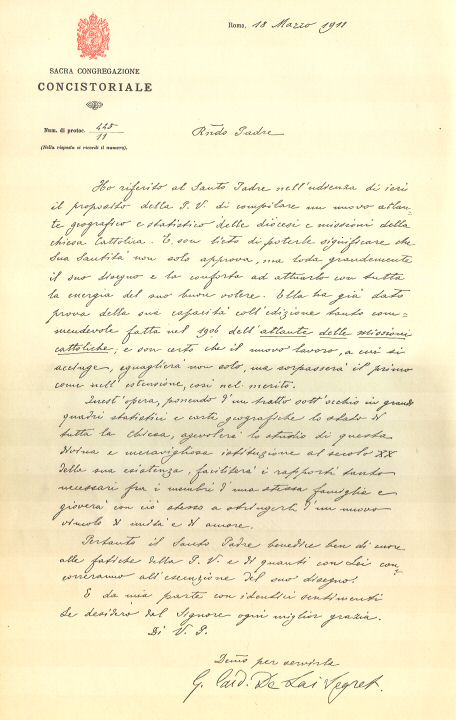 Roma, 18 Marzo 1911
SACRA CONGREGAZIONE
CONCISTORIALE
Num. di protoc. 425/11
(Nella risposta si ricordi il numero).
Rñdo Padre
Ho riferito al Santo Padre nell'udienza di ieri
il proposito della P. V. di compilare un nuovo atlan-
te geografico e statistico delle diocesi e missioni della
chiesa Cattolica. E son lieto di poterle significare che
Sua Santità non solo approva, ma loda grandemente
il suo disegno e la conforta ad attuarlo con tutta
la energia del suo buon volere. Ella ha già dato
prova della sua capacità coll'edizione tanto com-
mendevole fatta nel 1906 dell'atlante delle missioni
cattoliche; e son certo che il nuovo lavoro, a cui si
accinge, eguaglierà non solo, ma sorpasserà il primo
come nell'estensione, così nel merito.
Quest'opera, ponendo d'un tratto sott'occhio in grandi
quadri statistici e carte geografiche lo stato di
tutta la Chiesa, agevolerà lo studio di questa
divina e meravigliosa istituzione al secolo XX
della sua esistenza, faciliterà i rapporti tanto
necessari fra i membri d'una stessa famiglia e
gioverà con ciò stesso a stringerli d'un nuovo
vincolo di unità e di amore.
Pertanto il Santo Padre benedice ben di cuore
alle fatiche della P. V. e di quanti con Lei con-
correranno all'esecuzione del suo disegno.
E da mia parte con identici sentimenti
Le desidero dal Signore ogni miglior grazia.
Di V. P.
Demo per servirla
G. Card. De Lai Segret.